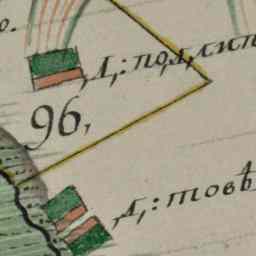 о.
Д,: подлип
96,
Д,: товѣ